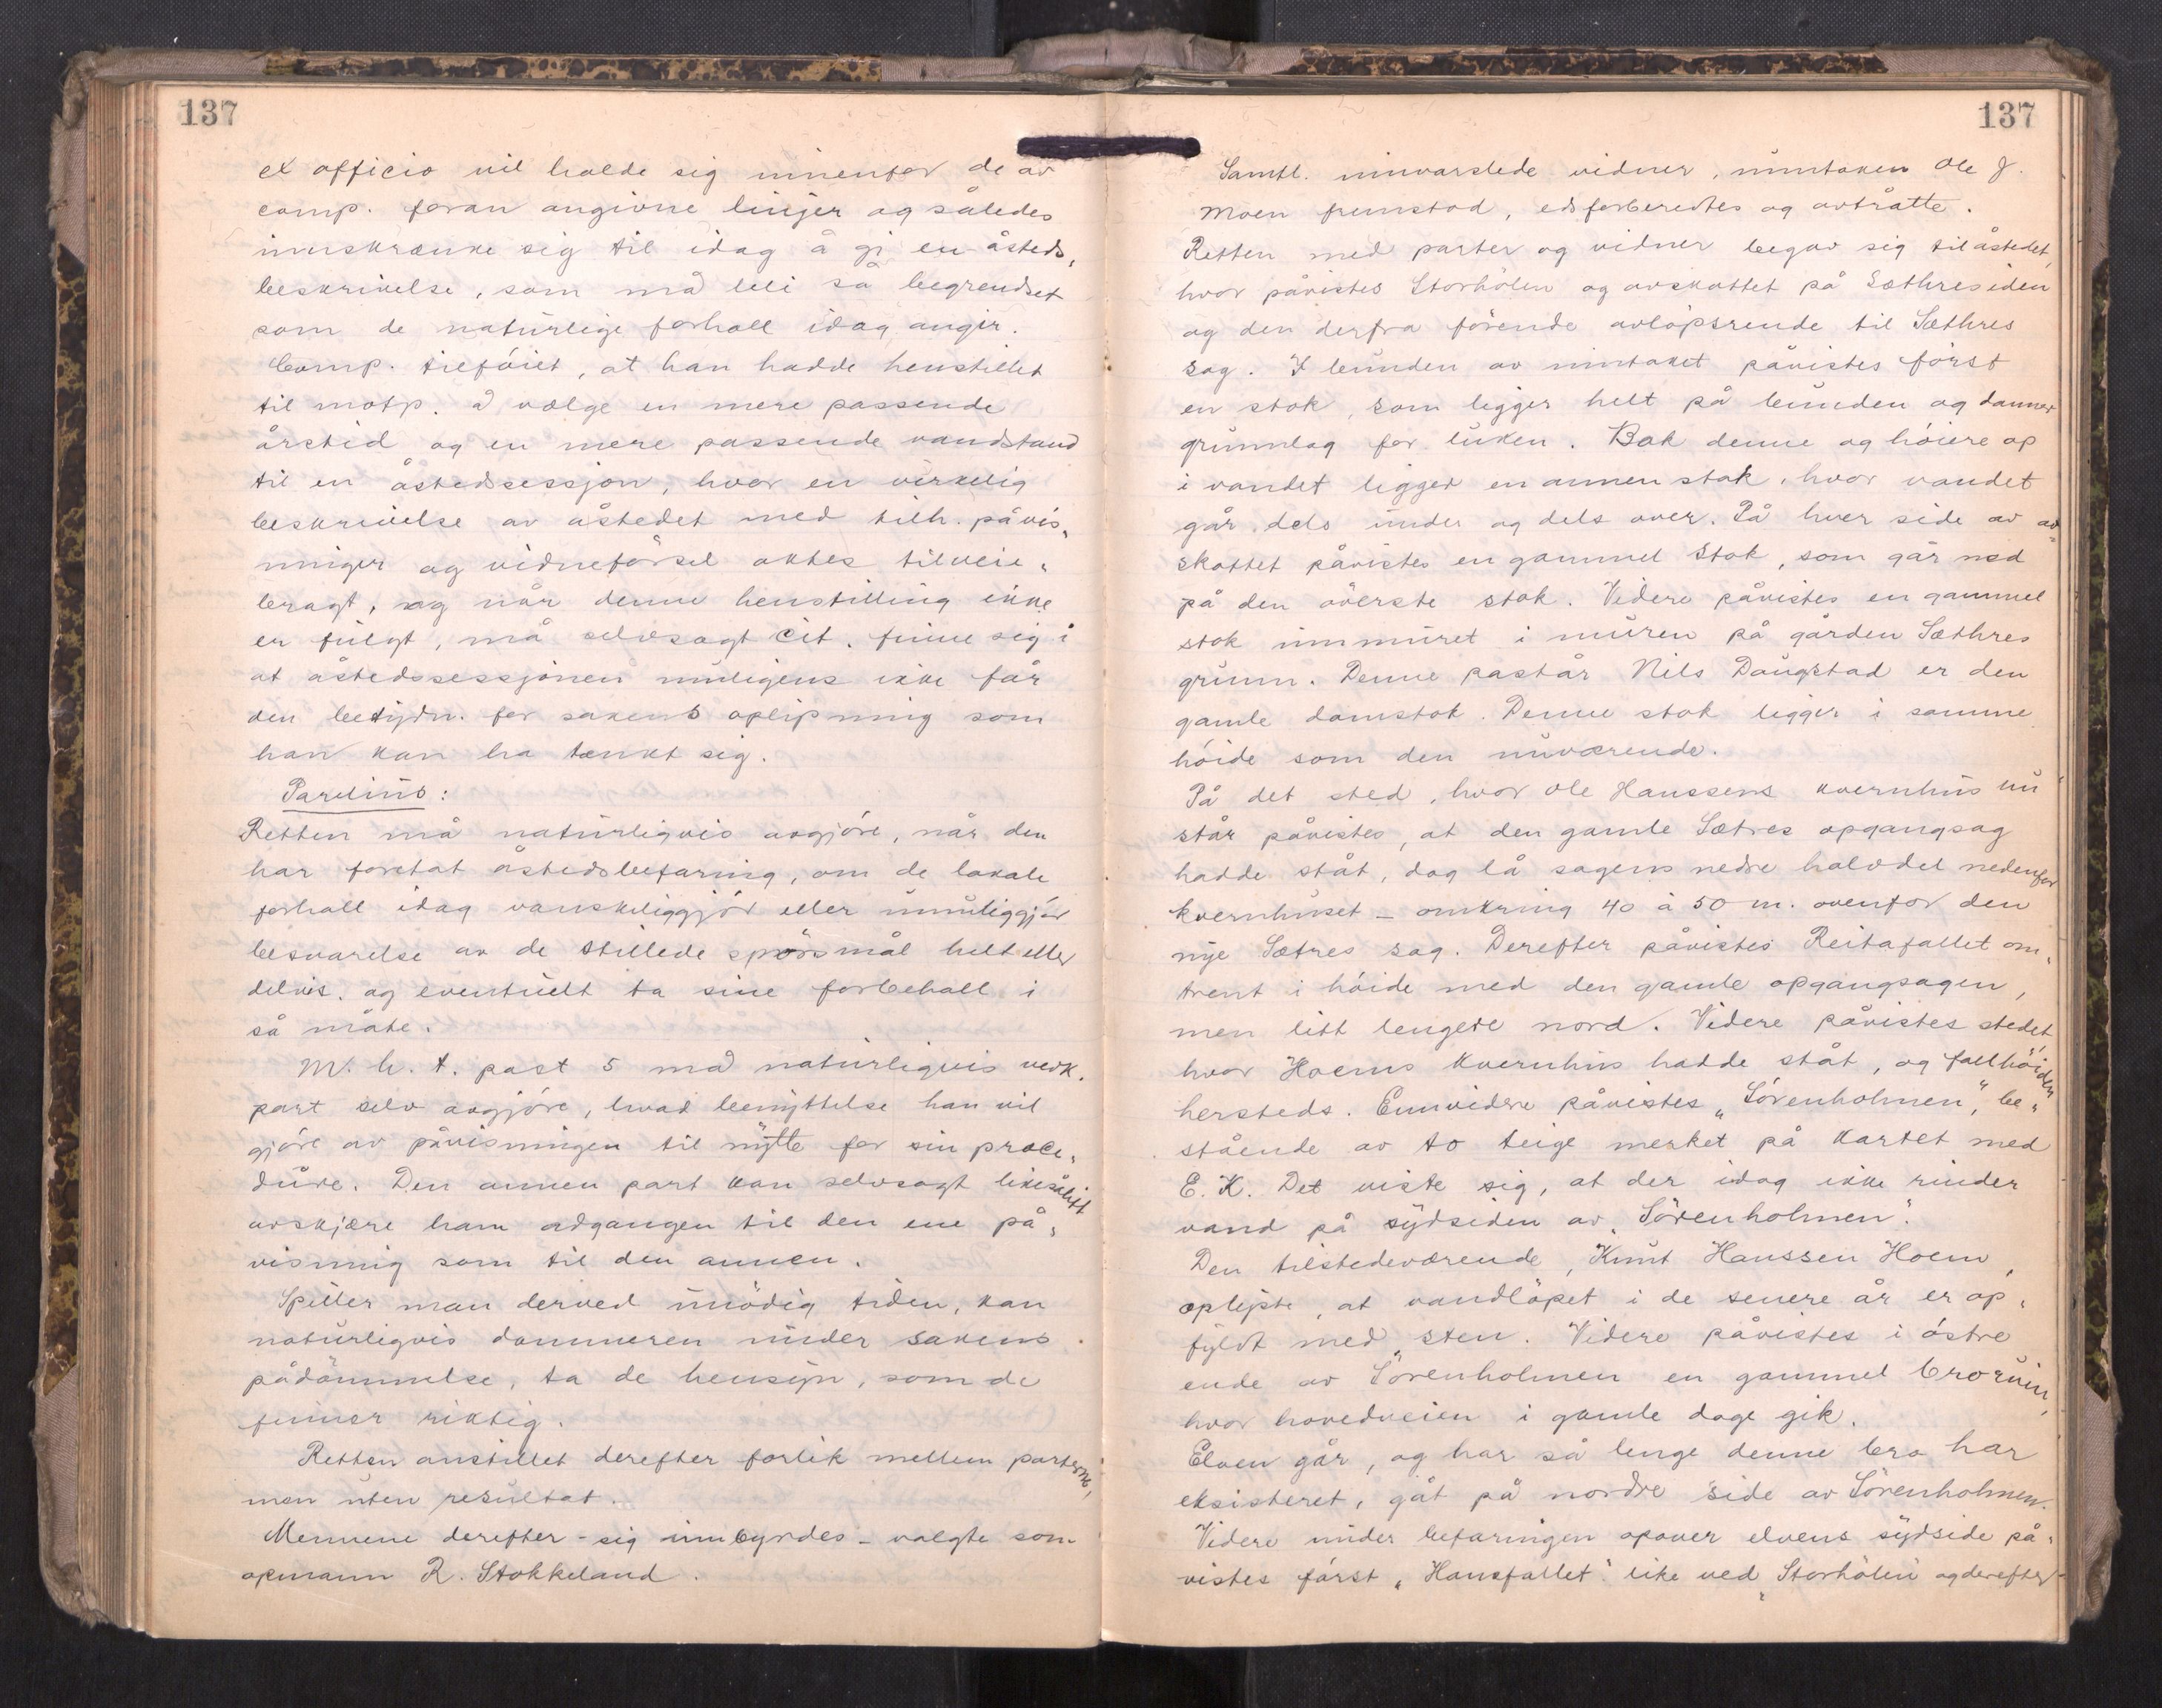 137
ex officio vil holde sig innenfor de av
comp. foran angivne linjer og således
innskrænke sig til idag å gi en åsteds„
beskrivelse, som må bli så begrendset
som de natúrlige forholl idag angir.
Comp. tilföiet, at han hadde henstillet
til motp. å vælge en mere passende
årstid og en mere passende vandstand
til en åstedssessjon, hvor en virkelig
beskrivelse av åstedet med tilh. påvis„
ninger og vidneförsel aktes tilveie„
bragt, og når denne henstilling ikke
er fúlgt, må selvsagt Cit. finne sig i
at åstedssessjonen múligens ikke får
den betydn. for sakens oplysning som
han kan ha tænkt sig.
Parelius:
Retten må natúrligvis avgjöre, når den
har foretat åstedsbefaring, om de lokale
forholl idag vanskeliggjör eller úmúliggjör
besvarelse av de stillede spörsmål helt eller
delvis. og eventúelt ta sine forbeholl i
så måte.
M. h. t. post 5 må natúrligvis vedk.
part selv avgjöre, hvad benyttelse han vil
gjöre av påvisningen til nytte for sin proce„
dúre. Den annen part kan selvsagt likesålitt
avskjære ham adgangen til den ene på„
visning som til den annen.
Spiller man derved únödig tiden, kan
natúrligvis dommeren únder sakens
pådömmelse, ta de hensyn, som de
finner riktig.
Retten anstillet derefter forlik mellem parterne,
men úten resúltat.
Mennene derefter - sig innbyrdes - valgte som
opmann R. Stokkeland.
137
Samtl. innvarslede vidner, únntaken Ole J.
Moen fremstod, edsforberedtes og avtråtte.
Retten med parter og vidner begav sig til åstedet,
hvor påvistes Storhölen og avskottet på Sæthresiden
og den derfra förende avlöpsrende til Sæthres
sag. I búnden av inntaket påvistes först
en stok, som ligger helt på búnden og danner
grúnnlag for lúken. Bak denne og höiere op
i vandet ligger en annen stok, hvor vandet
går dels únder og dels over. På hver side av av„
skottet påvistes en gammel stok, som går ned
på den överste stok. Videre påvistes en gammel
stok innmúret i múren på gården Sæthres
grúnn. Denne påstår Nils Daugstad er den
gamle damstok. Denne stok ligger i samme
höide som den núværende.
På det sted, hvor Ole Hanssens kvernhús nú
står påvistes, at den gamle Sætres opgangsag
hadde ståt, dog lå sagens nedre halvdel nedenfor
kvernhúset - omkring 40 à 50 m. ovenfor den
nye Sætres sag. Derefter påvistes Reitafallet om„
trent i höide med den gamle opgangsagen,
men litt lengere nord. Videre påvistes stedet,
hvor Hoems kvernhús hadde ståt, og fallhöiden
hersteds. Ennvidere påvistes „Sörenholmen", be„
stående av to teige merket på kartet med
E. K. Det viste sig, at der idag ikke rinder
vand på sydsiden av „Sörenholmen".
Den tilstedeværende, Knút Hanssen Hoem,
oplyste, at vandlöpet i de senere år er op„
fyldt med sten. Videre påvistes i östre
ende av Sörenholmen en gammel brorúin,
hvor hovedveien i gamle dage gik.
Elven går, og har så lenge denne bro har
eksisteret, gåt på nordre side av Sörenholmen.
Videre únder befaringen opover elvens sydside på„
vistes först „Hansfallet" like ved „Storhölen" og derefter